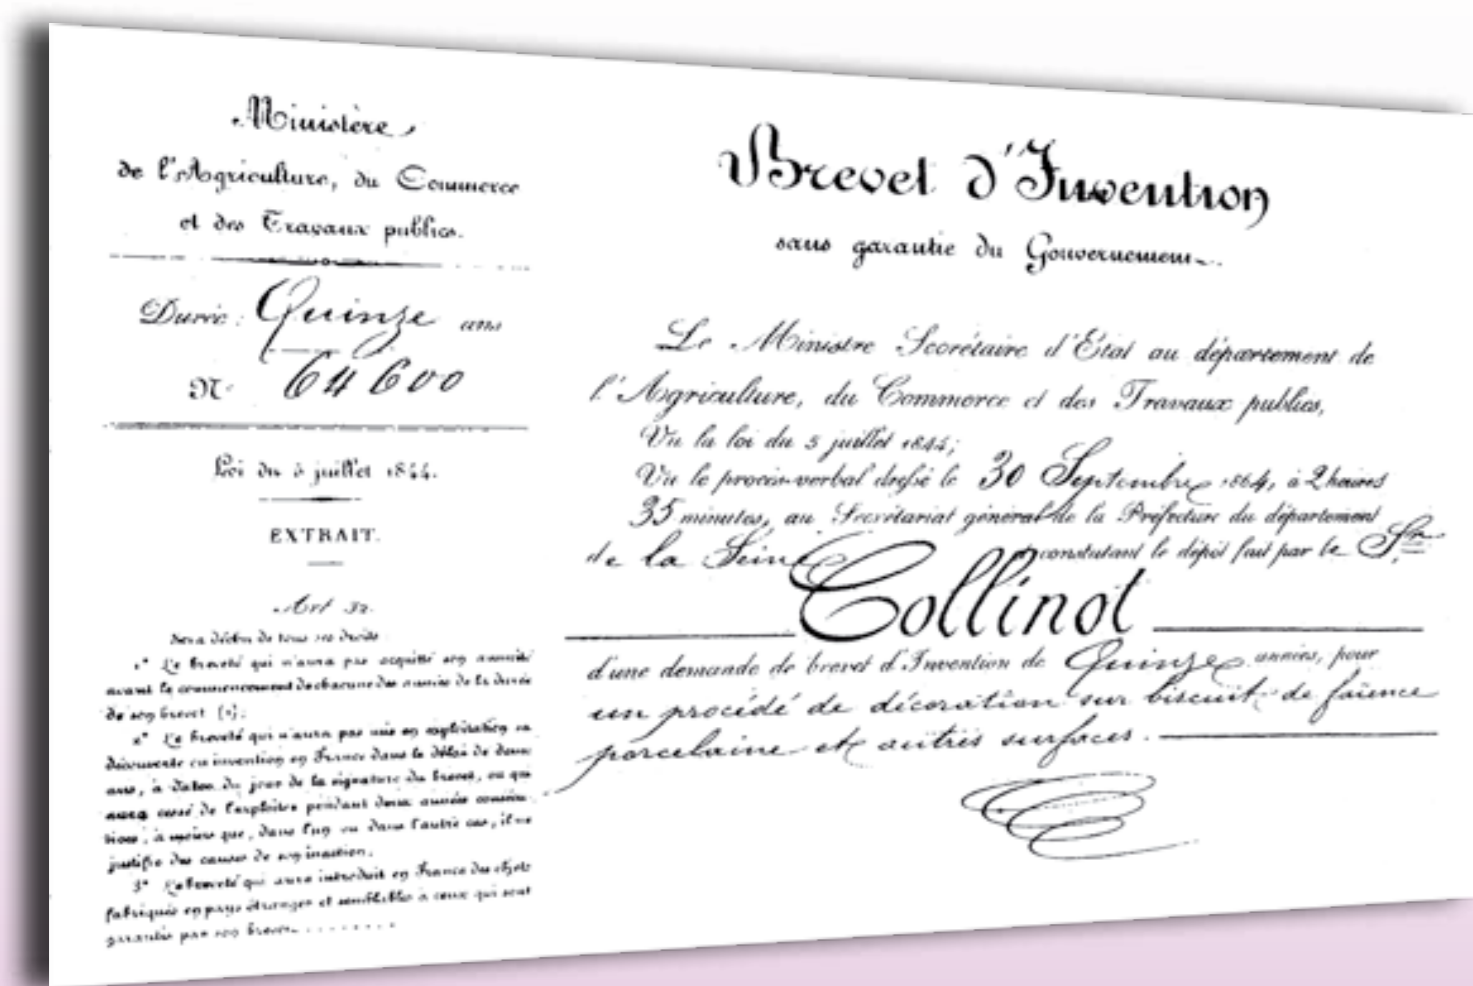 Ministère
de l'Agriculture, du Commerce
et des Travaux publics.
Durée : Quinze ans
N° 64600
Loi du 5 juillet 1844.
EXTRAIT.
Art 32.
Sera déchu de tous ses droits
1° Le breveté qui n'aura pas acquitté son annuité
avant le commencement de chacune des années de la durée
de son brevet (1);
2° Le breveté qui n'aura pas mis en exploitation sa
découverte ou invention en France dans le délai de deux
ans, à dater du jour de la signature du brevet, ou qui
aura cessé de l'exploiter pendant deux années consécu-
tives, à moins que, dans l'un ou dans l'autre cas, il ne
justifie des causes de son inaction.
3° Le breveté qui aura introduit en France des objets
fabriqués en pays étranger et semblables à ceux qui sont
garantis par son brevet. . . . . . . .
Brevet d'Invention
sans garantie du Gouvernement.
Le Ministre Secrétaire d'État au département de
l'Agriculture, du Commerce et des Travaux publics,
Vu la loi du 5 juillet 1844;
Vu le procès-verbal dressé le 30 Septembre 1864, à 2 heures
35 minutes, au Secrétariat général de la Préfecture du département
de la Seine constatant le dépôt fait par le Sr.
Collinot
d'une demande de brevet d'Invention de Quinze années, pour
un procédé de décoration sur biscuit de faïence
porcelaine et autres surfaces.